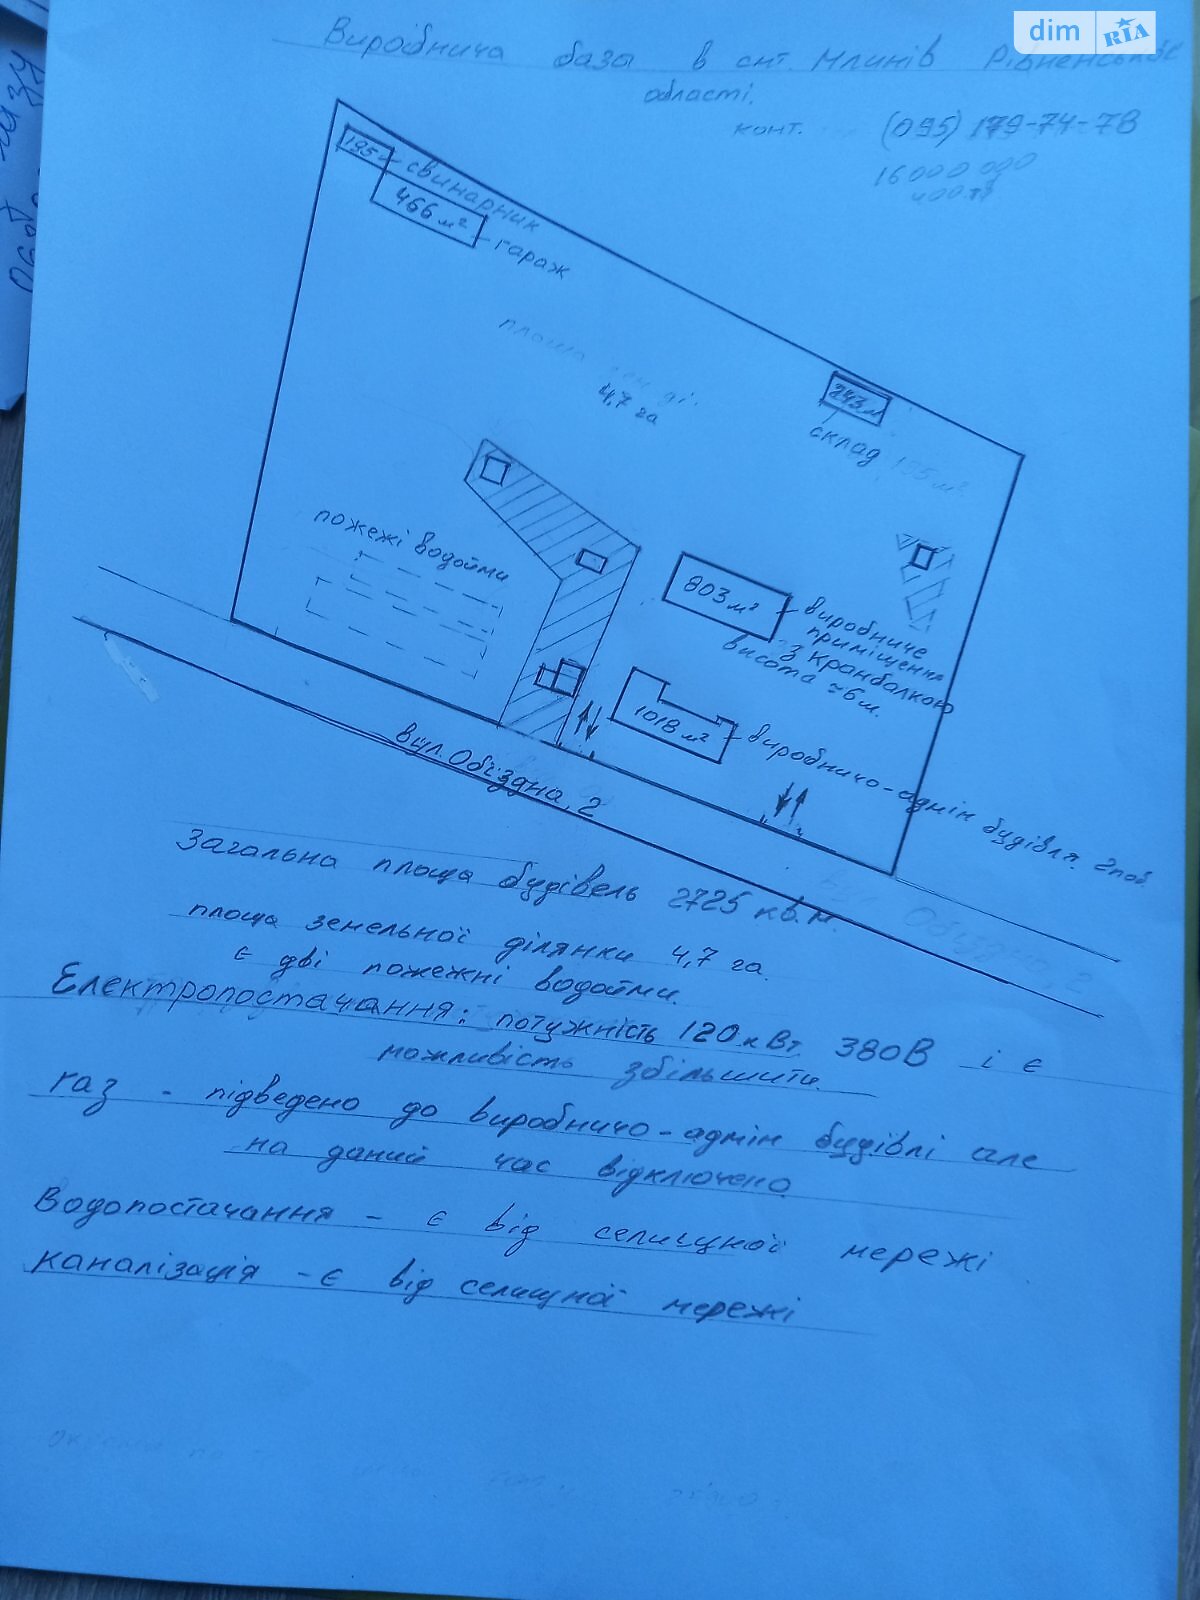 dim RIA
Виробнича базы в смт. Млинів Рівненської
області.
конт. (095) 179-74-78
16000 000
195
свинарник
466 м²
гараж
площа
4,7 га
243 м
склад 195 м²
пожежі водойми
803 м²
виробниче
приміщення
з Кранбалкою
висота ≈6м.
1018 м²
виробничо-адмін будівля 2пов.
вул. Об'їздна, 2
вул Об'їздна, 2
Загальна площа будівель 2725 кв.м.
площа земельної ділянки 4,7 га.
є дві пожежні водойми.
Електропостачання: потужність 120 кВт. 380В і є
можливість збільшити.
газ - підведено до виробничо-адмін будівлі але
на даний час відключено
Водопостачання - є від селищної мережі
каналізація - є від селищної мережі